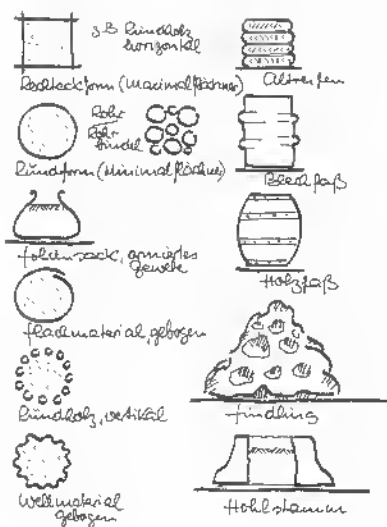 z.B. Rundholz
horizontal
Rechteckform (Maximalflächner)
Rohr
Rohr
bündel
Rundform (Minimalflächner)
Foliensack, armiertes
Gewebe
Flachmaterial, gebogen
Rundholz, vertikal
Wellmaterial
gebogen
Altreifen
Blechfaß
Holzfaß
Findling
Hohlstamm